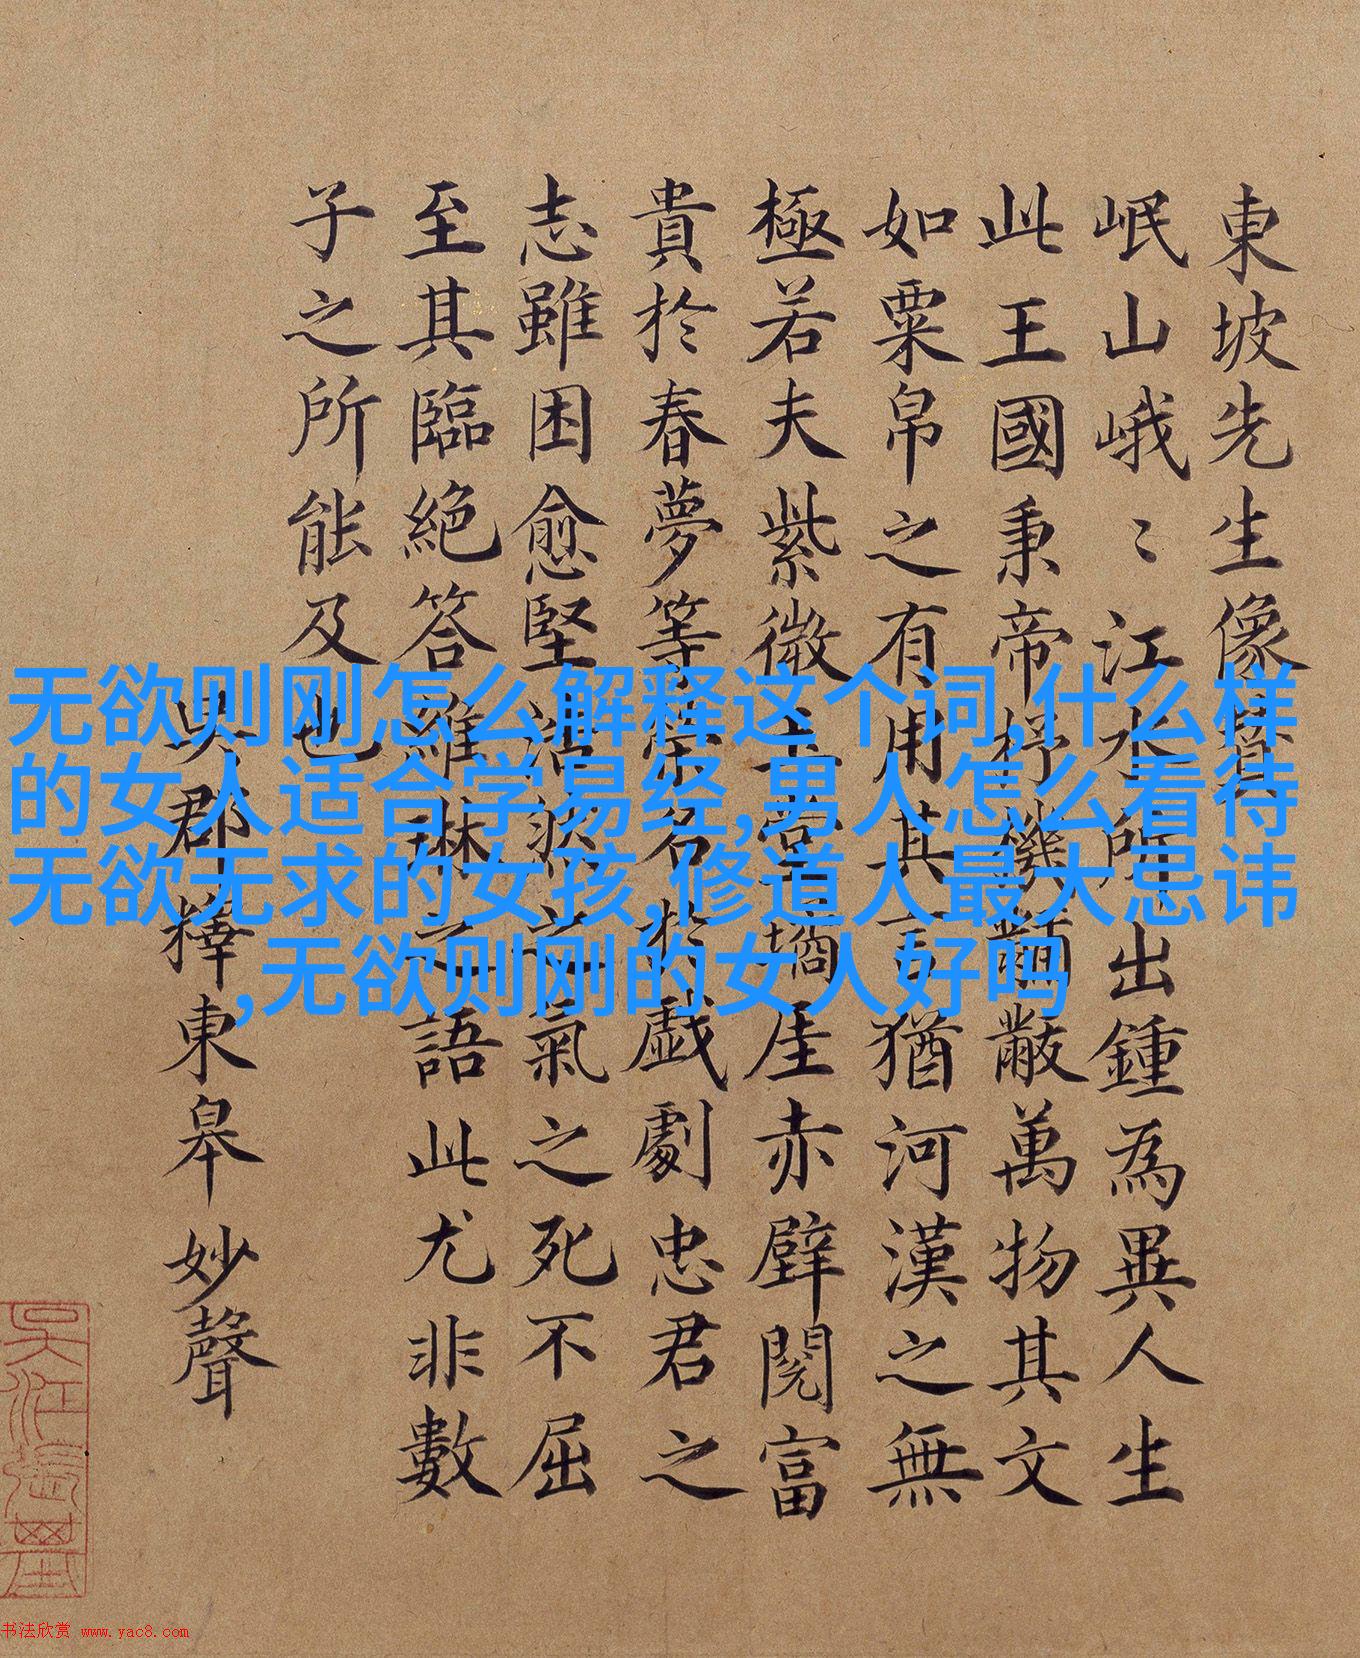 東坡先生像贊
岷山峨〻江水所出鍾為異人生
此王國秉帝杼機黼黻萬物其文
如粟帛之有用其言猶河漢之無
極若夫紫微玉堂厓赤壁閱富
貴於春夢等榮名於戲劇忠君之
志雖困愈堅浩然之氣之死不屈
至其臨絕答維琳之語此尤非數
子之所能及也
吳郡釋東皋妙聲
无欲则刚怎么解释这个词,什么样
的女人适合学易经,男人怎么看待
无欲无求的女孩,修道人最大忌讳
,无欲则刚的女人好吗
书法欣赏 www.yac8.com